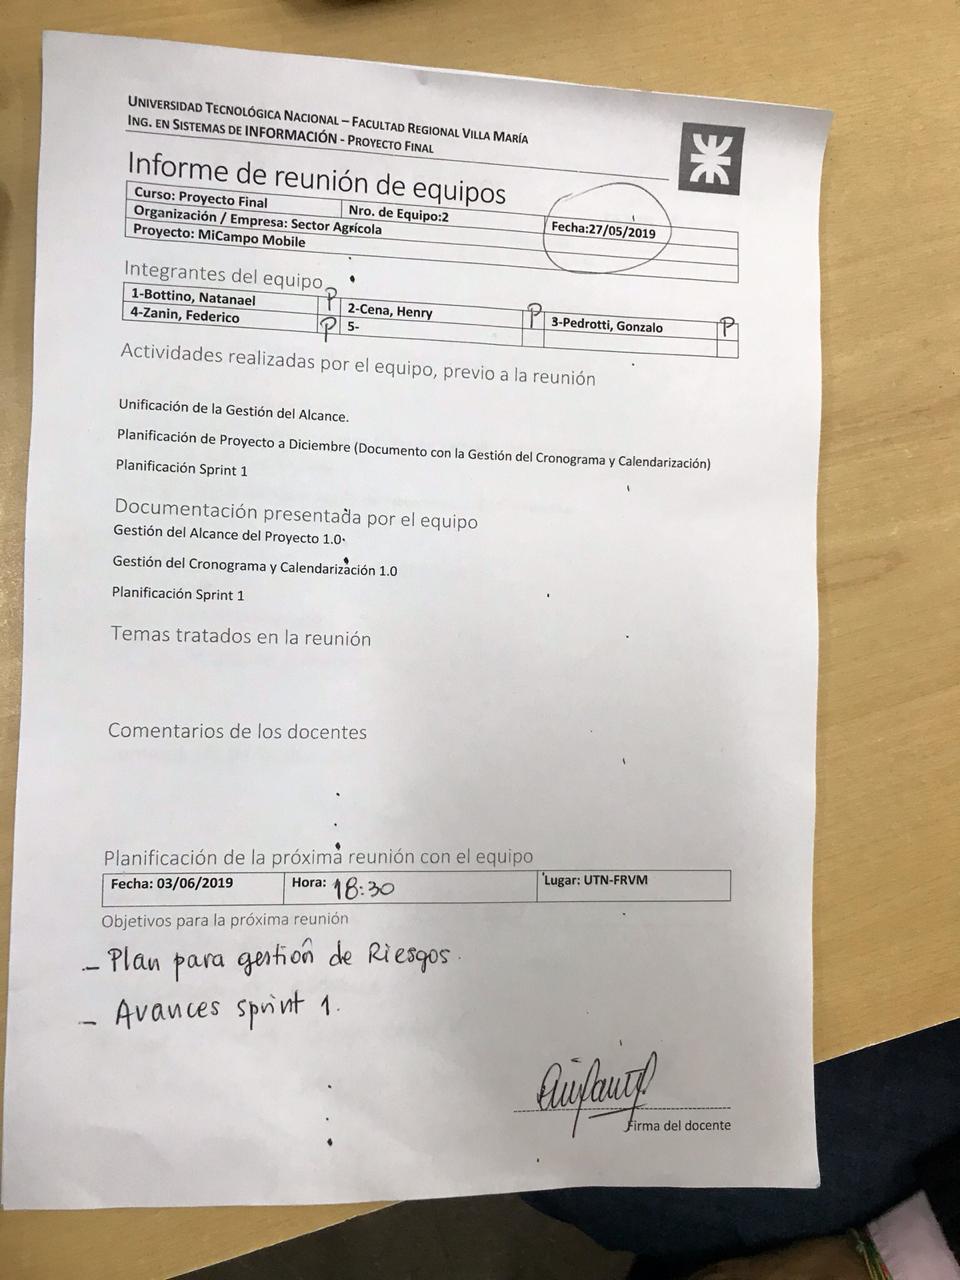 UNIVERSIDAD TECNOLÓGICA NACIONAL – FACULTAD REGIONAL VILLA MARÍA
ING. EN SISTEMAS DE INFORMACIÓN - PROYECTO FINAL
Informe de reunión de equipos
Curso: Proyecto Final Nro. de Equipo:2 Fecha:27/05/2019
Organización / Empresa: Sector Agrícola
Proyecto: MiCampo Mobile
Integrantes del equipo
1-Bottino, Natanael P 2-Cena, Henry P 3-Pedrotti, Gonzalo P
4-Zanin, Federico P 5-
Actividades realizadas por el equipo, previo a la reunión
Unificación de la Gestión del Alcance.
Planificación de Proyecto a Diciembre (Documento con la Gestión del Cronograma y Calendarización)
Planificación Sprint 1
Documentación presentada por el equipo
Gestión del Alcance del Proyecto 1.0
Gestión del Cronograma y Calendarización 1.0
Planificación Sprint 1
Temas tratados en la reunión
Comentarios de los docentes
Planificación de la próxima reunión con el equipo
Fecha: 03/06/2019 Hora: 18:30 Lugar: UTN-FRVM
Objetivos para la próxima reunión
– Plan para gestión de Riesgos.
– Avances sprint 1.
Firma del docente